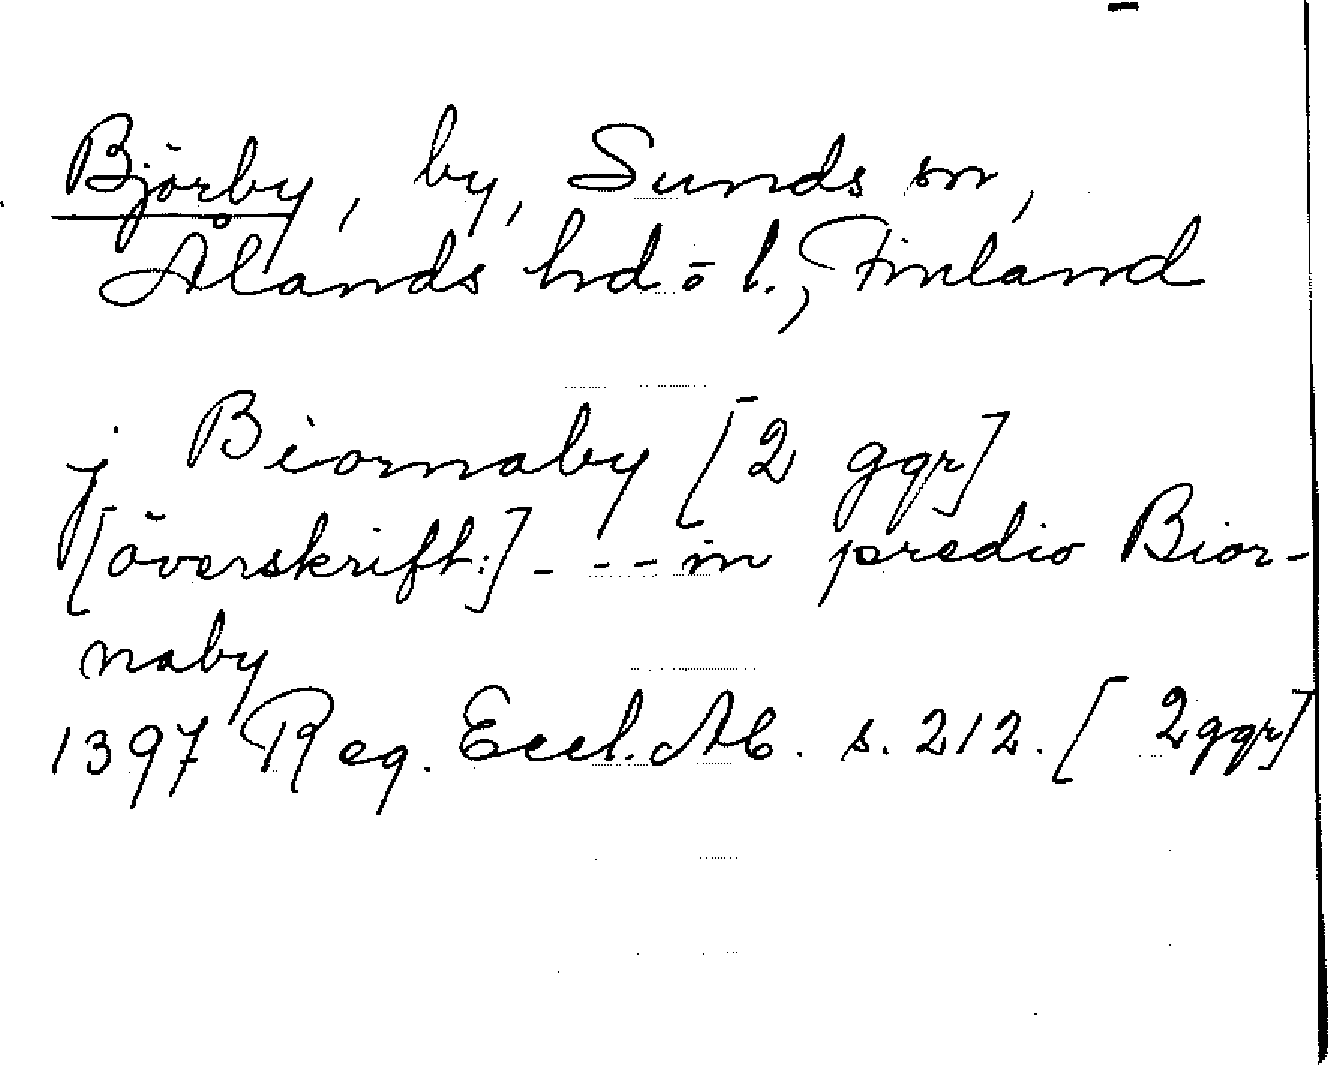 Björby, by, Sunds sn,
Ålands hd. ō l., Finland
j Biornaby [2 ggr]
[överskrift:] - - - in predio Bior-
naby
1397 Reg. Eccl. Ab. s. 212. [2 ggr]